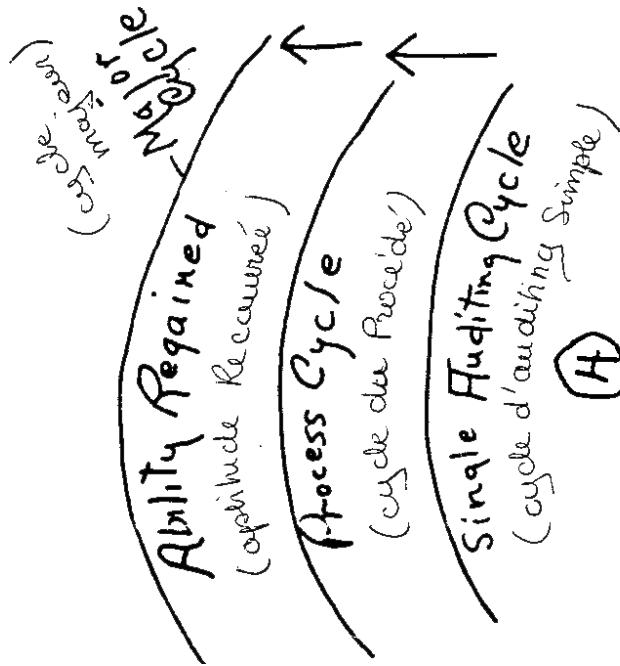 (cycle majeur)
Major Cycle
Ability Regained
(aptitude Recouvrée)
Process Cycle
(cycle du Procédé)
Single Auditing Cycle
(cycle d'auditing simple)
H